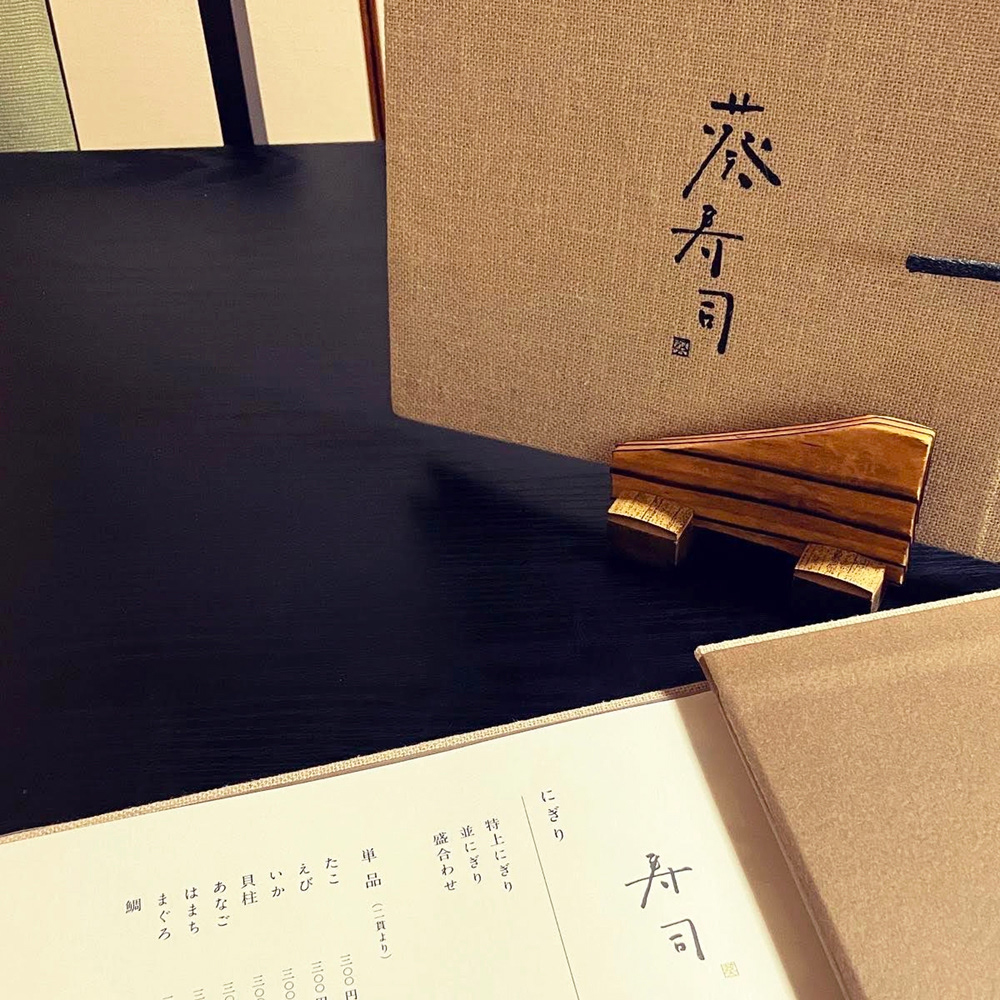 葵寿司
寿司
にぎり
特上にぎり
並にぎり
盛合わせ
単品（二貫より）
たこ 三〇〇円
えび 三〇〇円
いか 三〇〇
貝柱 三〇〇
あなご
はまち
まぐろ
鯛